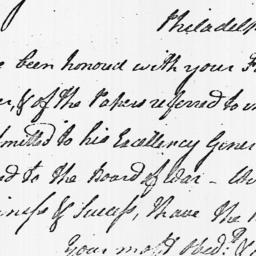 Philadelp
e been honored with your F
er, & of the Papers referred to in
mitted to his Excellency Gener
ed to the Board of War – W
iness & Success, I have the H
Your most Obed.t &